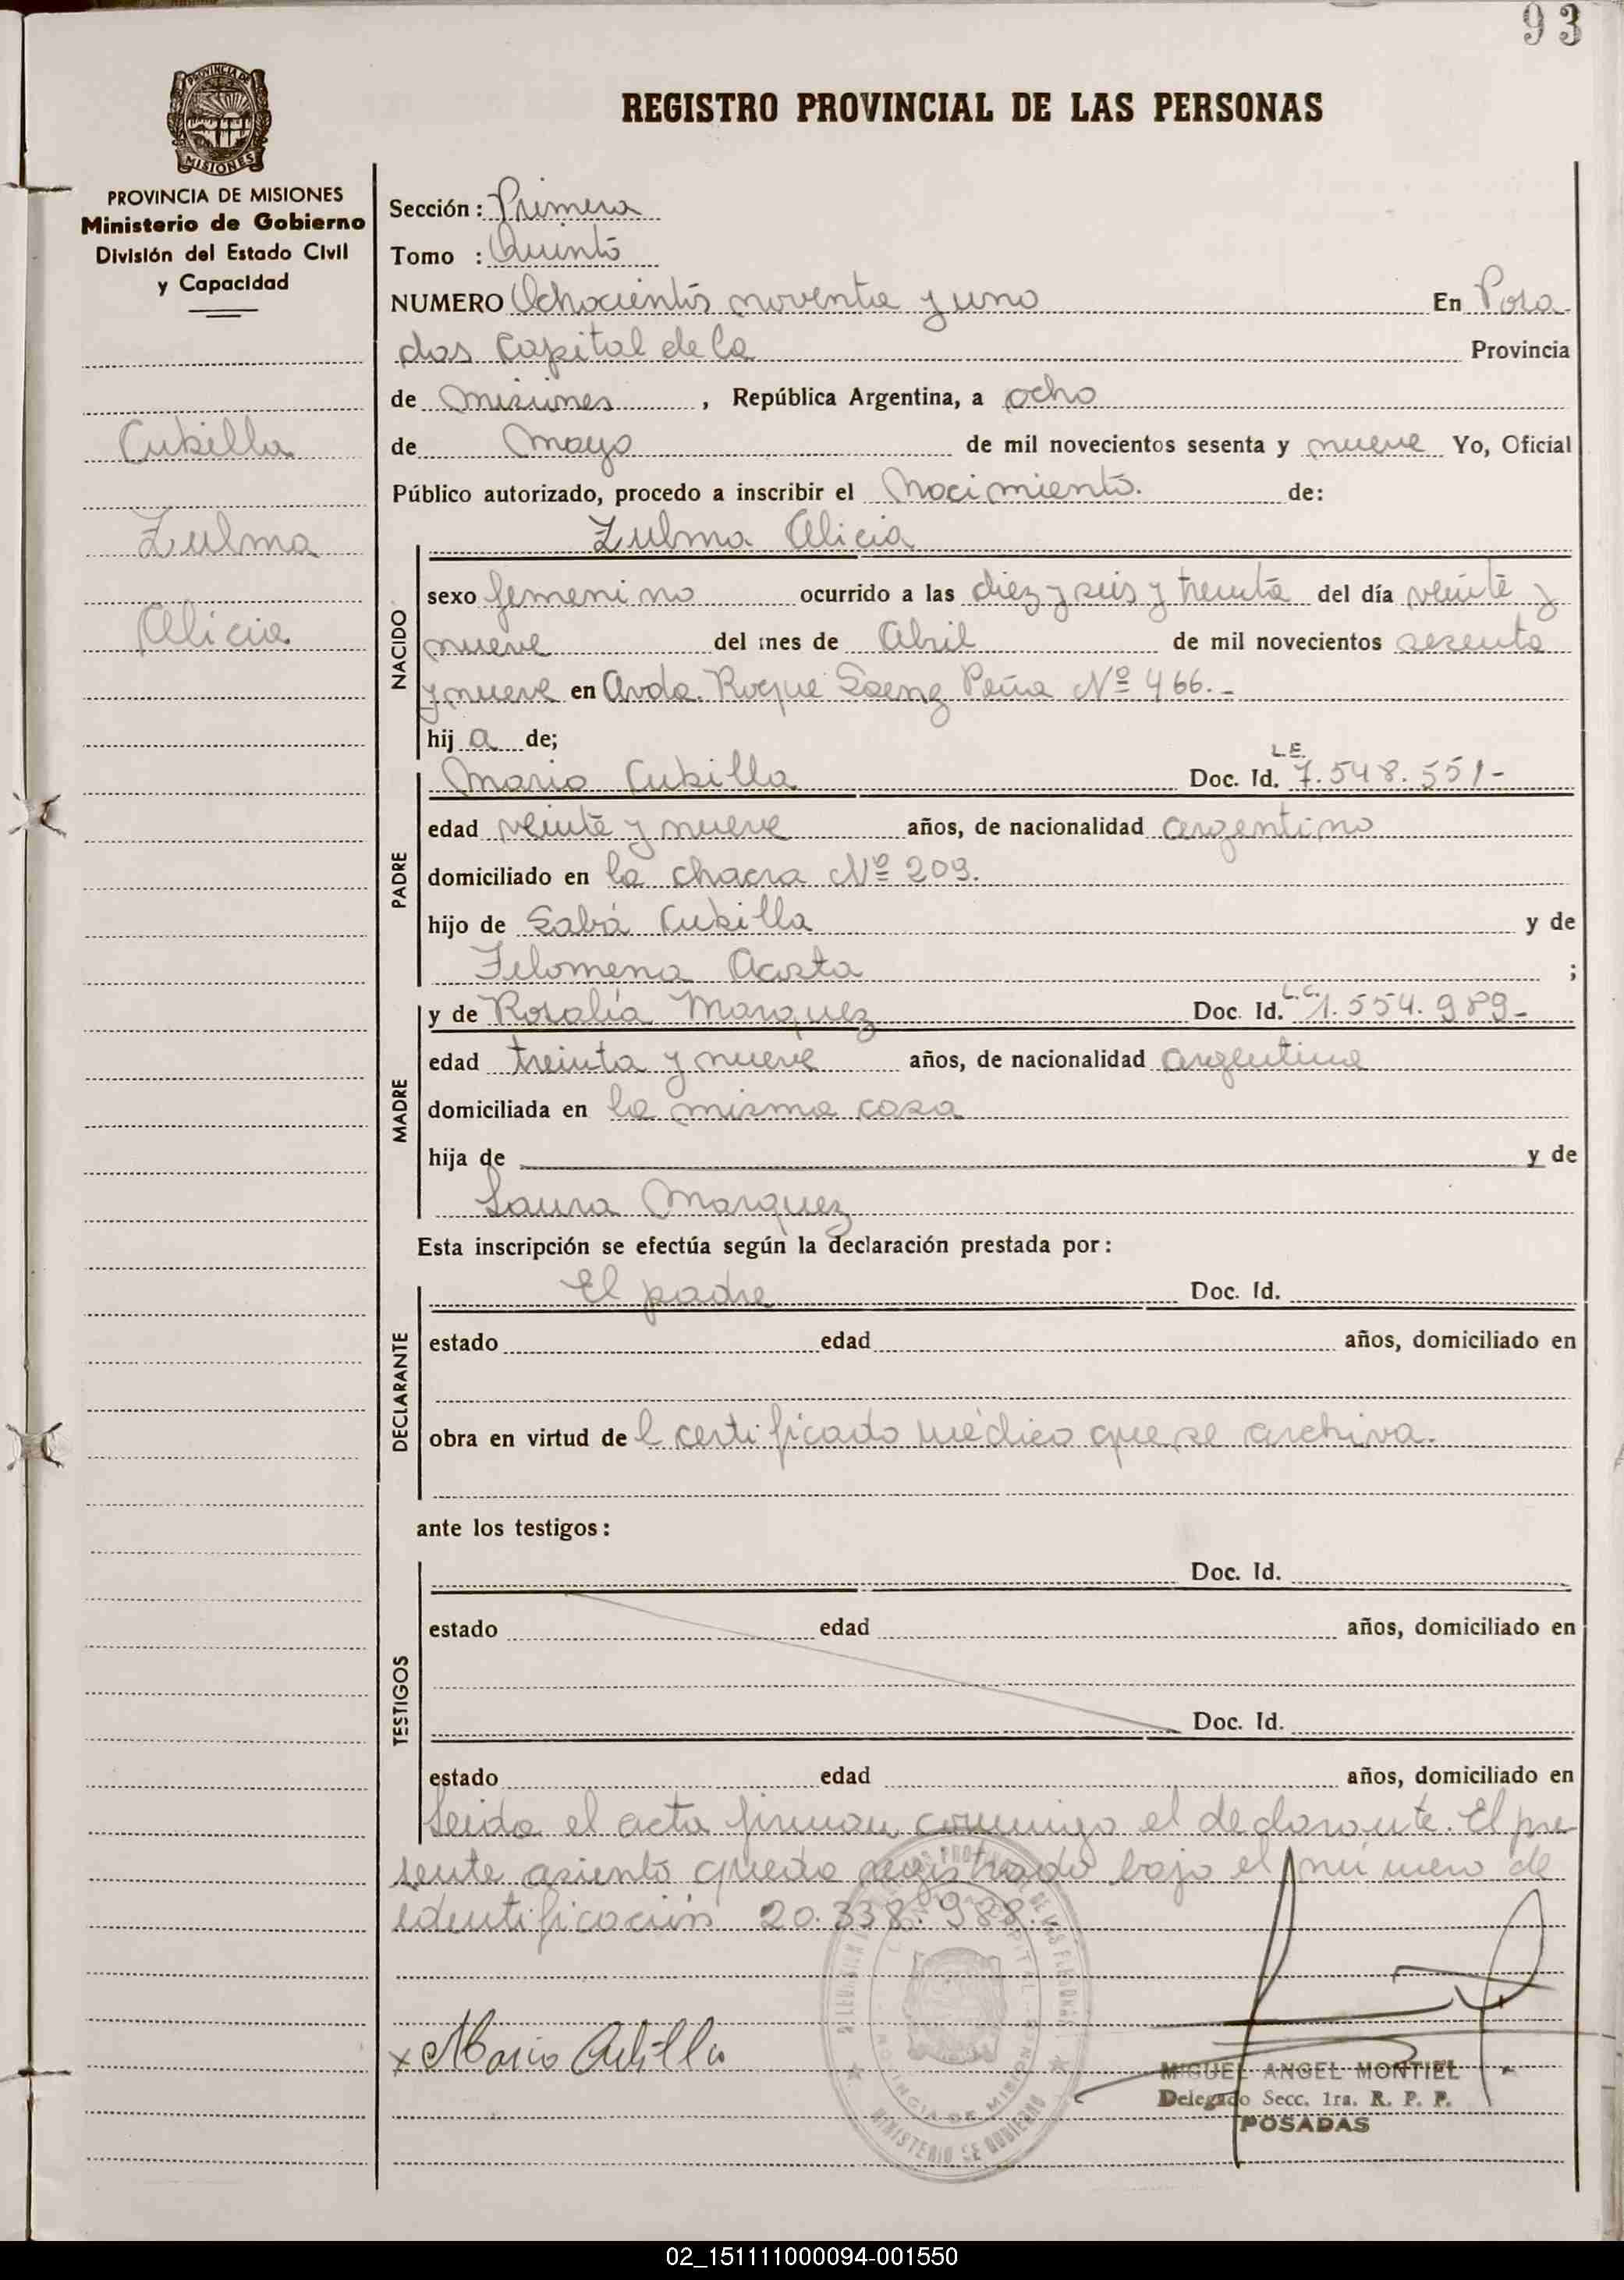 93
PROVINCIA DE
MISIONES
REGISTRO PROVINCIAL DE LAS PERSONAS
PROVINCIA DE MISIONES
Ministerio de Gobierno
División del Estado Civil
y Capacidad
Cubilla
Zulma
Alicia
Sección: Primera
Tomo : Quinto
NUMERO Ochocientos noventa y uno En Posa
das Capital de la Provincia
de Misiones , República Argentina, a ocho
de Mayo de mil novecientos sesenta y nueve Yo, Oficial
Público autorizado, procedo a inscribir el Nacimiento. de:
NACIDO
Zulma Alicia
sexo femenino ocurrido a las diez y seis y treinta del día veinte y
nueve del mes de Abril de mil novecientos sesenta
y nueve en Avda. Roque Saenz Peña Nº 466.-
hij a de;
PADRE
Mario Cubilla Doc. Id. L.E. 7.548.551-
edad veinte y nueve años, de nacionalidad argentino
domiciliado en la chacra Nº 209.
hijo de Sabá Cubilla y de
Filomena Acosta ;
MADRE
y de Rosalía Marquez Doc. Id. L.C. 1.554.989-
edad treinta y nueve años, de nacionalidad argentina
domiciliada en la misma casa
hija de y de
Laura Marquez
Esta inscripción se efectúa según la declaración prestada por:
DECLARANTE
El padre Doc. Id.
estado edad años, domiciliado en
obra en virtud del certificado médico que se archiva.
ante los testigos:
TESTIGOS
Doc. Id.
estado edad años, domiciliado en
Doc. Id.
estado edad años, domiciliado en
Leida el acta firman conmigo el declarante. El pre
sente asiento queda registrado bajo el número de
identificación 20.338.988.
x Mario Cubilla
MINISTERIO DE GOBIERNO
MIGUEL ANGEL MONTIEL
Delegado Secc. 1ra. R. P. P.
POSADAS
02_151111000094-001550